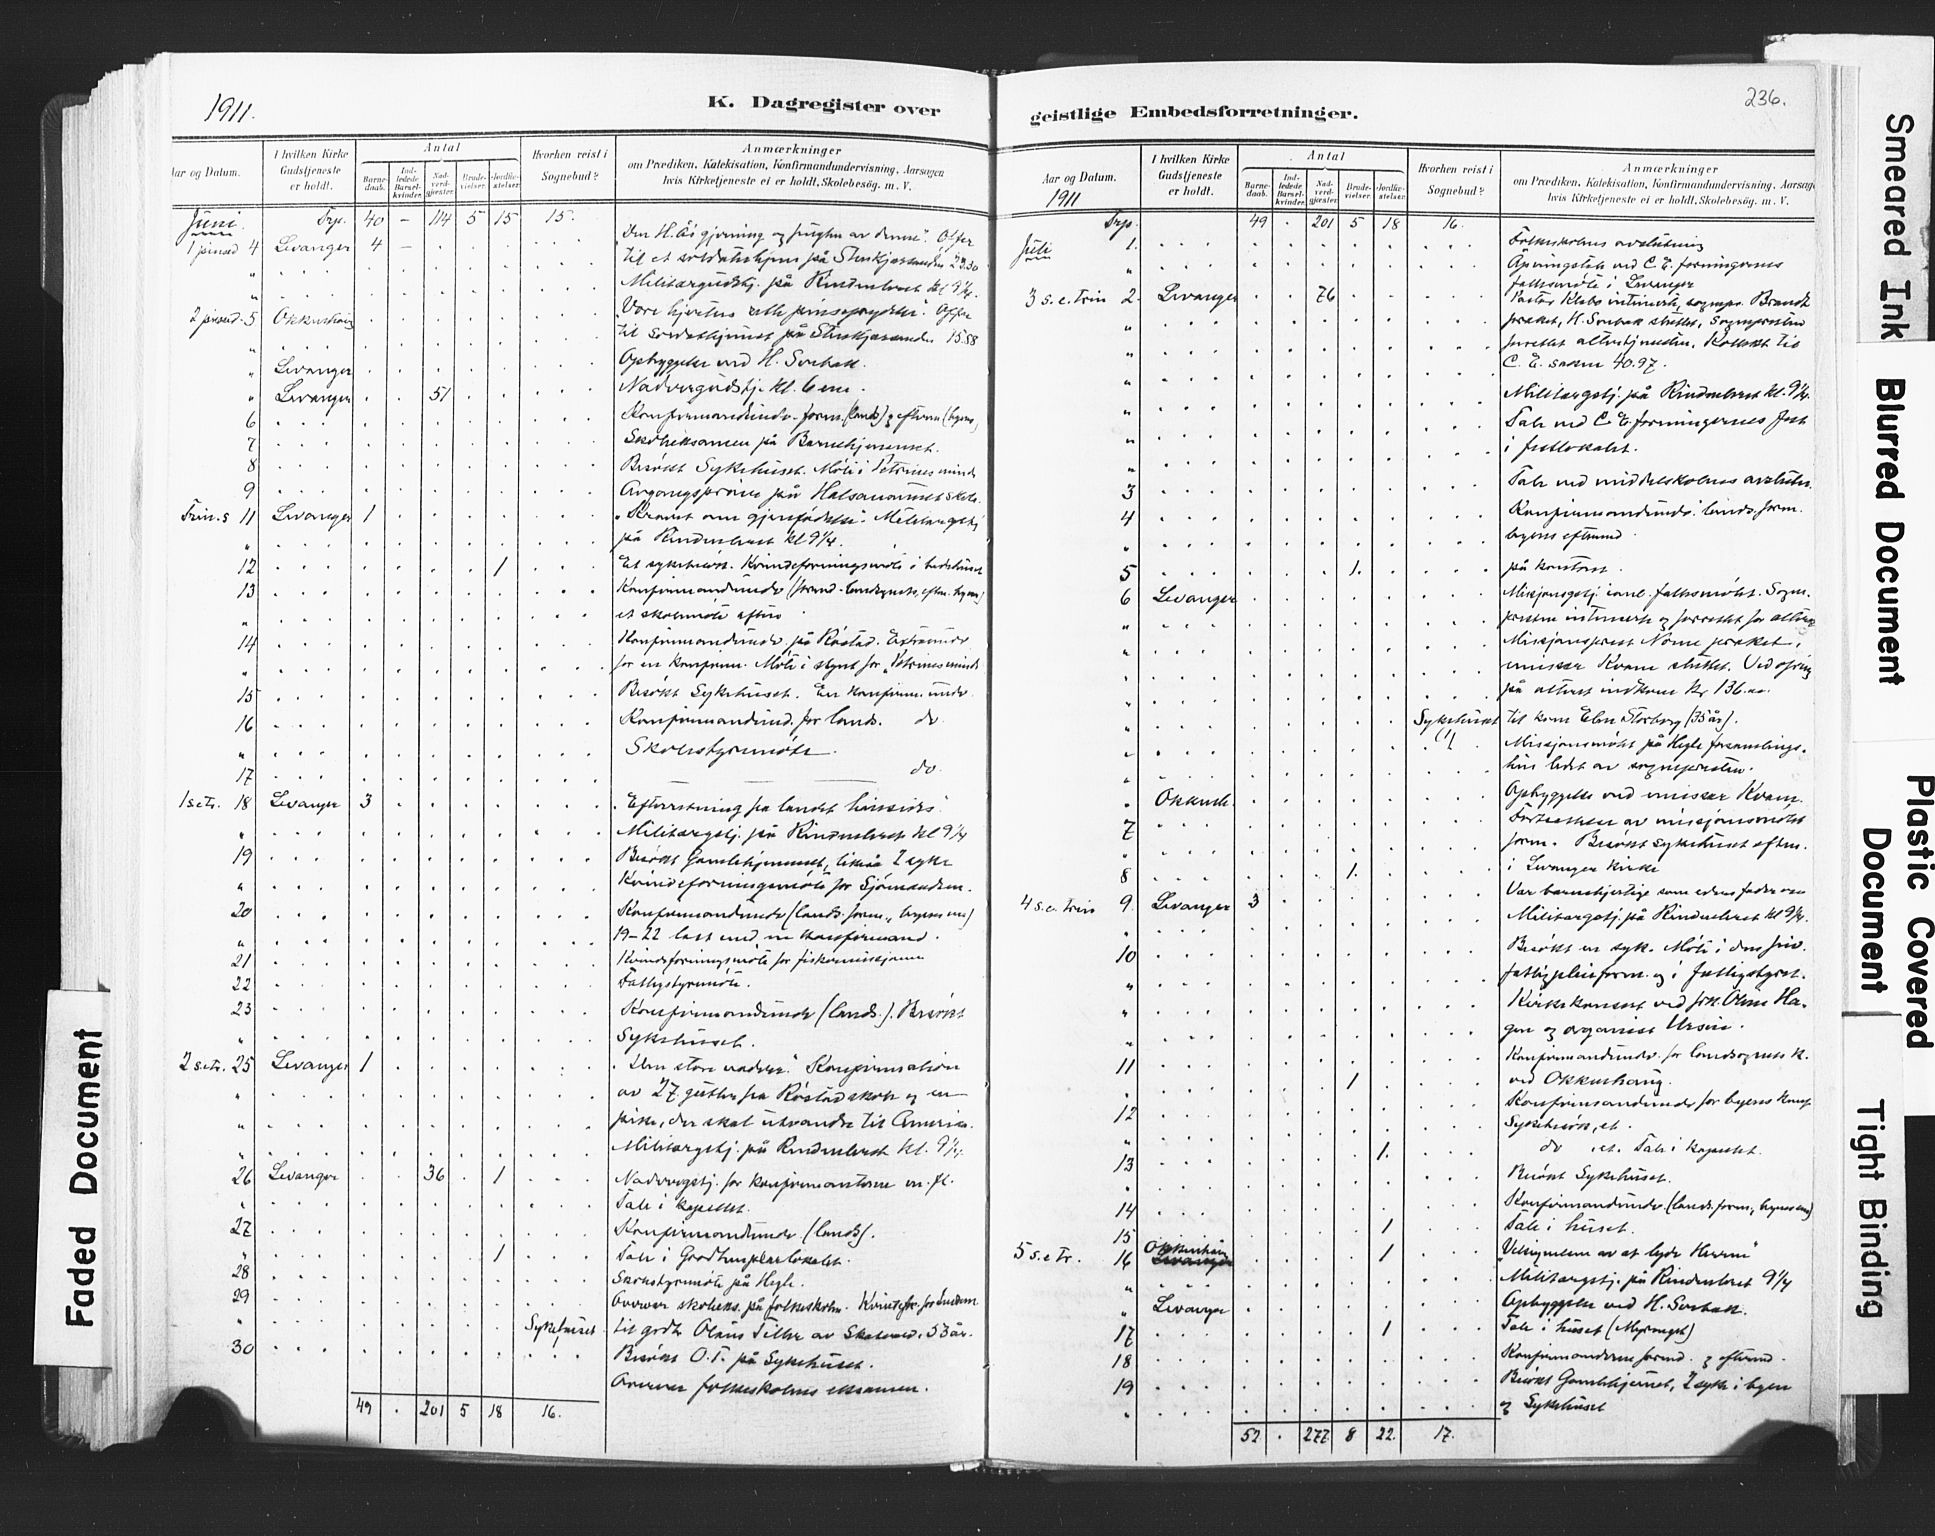 1911.
K. Dagregister over
Aar og Datum.
I hvilken Kirke Gudstjeneste er holdt.
Antal
Barnedaab.
Indledede Barselkvinder.
Nadverdgjester.
Brudevielser.
Jordfæstelser.
Hvorhen reist i Sognebud?
Anmærkninger
om Prædiken, Katekisation, Konfirmandundervisning, Aarsagen
hvis Kirketjeneste ei er holdt, Skolebesøg. m. V.
Juni Trp. 40 - 114 5 15 15.
1 pinsed 4 Levanger 4 - Den H. Ås gjerning og frugten av denne". Offer
til et soldathjem på Stenkjærsanden 23.30
" Militærgudstj. på Rindenleret kl 9¼.
2 pinsed. 5 Okkenhaug "Vore hjerters rette pinsepryd". Offer
til soldathjemet på Stenkjærsanden 15.88
" Levanger Opbyggelse ved H. Sorbak.
" Levanger 51 Nadvergudstj. kl. 6 em.
6 Konfirmandundv. form. (lands) og efterm (byens)
7 Skoleeksamen på Barnehjemmet.
8 Besøkt Sykehuset. Møte i Petrines minde
9 Avgangsprøve på Halsanaunet skole.
Trin.s 11 Levanger 1 "Kravet om gjenfødelse". Militærgstj
" på Rindenleret kl 9¼.
12 1 Et sykebesøk. Kvindeforeningsmøte i bedehuset
13 Konfirmandundv (formd. landsognets, efterm. byens)
" et skolemøte efterm
14 Konfirmandundv. på Røstad. Extraundv
" for en konfirm. Møte i styret for "Petrines minde
15 Besøkt Sykehuset. En konfirm. undv.
16 Konfirmandund. for lands. do
" Skolestyremøte.
17 do.
1 s e tr. 18 Levanger 3 "Efterretning fra landet hinsides".
" Militærgstj. på Rindenleret kl 9¼
19 Besøkt Gamlehjemmet, likeså 2 syke
" Kvindeforeningsmøte for Sjømandsm.
20 Konfirmandundv (lands. form., byens em)
" 19-22 læst med en konfirmand.
21 Kvindeforeningsmøte for fiskermissionen
22 Fattigstyremøte.
23 Konfirmandundv (lands.). Besøkt
" Sykehuset.
2 s e tr. 25 Levanger 1 "Den store nadver." Konfirmation
" av 27 gutter fra Røstad skole og en
" pike, der skal utvandre til Amerika.
" Militærgstj. på Rindenleret kl. 9¼.
26 Levanger 36 1 Nadvergstj. for konfirmanterne m. fl.
" Tale i kapellet.
27 Konfirmandundv (lands).
" 1 Tale i Goodtemplarlokalet.
28 Skolestyremøte på Hegle.
29 Overvær skoleeks. på folkeskolen.
" Sykehuset til gårdb. Olaus Tiller av Skatvold, 53 år.
30 Besøkt O.T. på Sykehuset.
Overvær folkeskolens eksamen.
49 . 201 5 18 16.
236.
geistlige Embedsforretninger.
Aar og Datum.
1911
I hvilken Kirke Gudstjeneste er holdt.
Antal
Barnedaab.
Indledede Barselkvinder.
Nadverdgjester.
Brudevielser.
Jordfæstelser.
Hvorhen reist i Sognebud?
Anmærkninger
om Prædiken, Katekisation, Konfirmandundervisning, Aarsage
hvis Kirketjeneste ei er holdt, Skolebesøg. m. V.
Trp. 49 . 201 5 18 16.
Juli 1. Folkeskolens avslutning
" Åpningstale ved C. E. foreningernes
fællesmøte i Levanger
3 s. e. Trin 2. Levanger 76 Pastor Klebs intimerte, sogнepr. Brandt
" præket, H. Sorbak sluttet, sognepresten
" forrettet altertjenesten. Kollekt til
" C. E. saken 40.97.
" Militærgstj. på Rindenleret kl. 9¼.
" Tale ved C. E. foreningernes fest
" i festlokalet.
3 Tale ved middelskolens avslutn.
4 Konfirmandundv. lands. form.
" byens eftermd.
5 1. på kontoret.
6 Levanger Misjonsgstj. i anl. fællesmøtet. Sogne-
" presten intimerte og forrettet for alteret
" Misjonsprest Nome præket,
" emissær Kvam sluttet. Ved ofring
" på alteret indkom kr 136.00.
" Sykehuset (1) til kone Elen Storborg (35 år).
" Misjonsmøte på Hegle forsamlings-
" hus ledet av sognepresten.
" Okkenh. Opbyggelse ved emissær Kvam.
7 Fortsættelse av misjonsmøtet
" form. Besøkt sykehuset efterm.
8 1. i Levanger kirke
4 s. e. Trin 9. Levanger 3 Vær barmhjertige som eders fader osv
" Militærgstj. på Rindenleret kl 9¼.
10 Besøkt en syk. Møte i den friv.
" fattigpleieforen. og i fattigstyret.
" Kirkekonsert ved frk. Oline Ha-
" gen og organist Ursin.
11 Konfirmandundv. for landsognets k.
" 1 ved Okkenhaug.
12 Konfirmandundv for byens konf.
" Sykebesøk, et.
13 1. do et. Tale i kapellet.
" Besøkt Sykehuset.
14 Konfirmandundv. (lands. form., byens em)
15 1 Tale i huset.
5 s. e Tr. 16 Okkenhaug Levanger 1 "Velsignelsen av at lyde Herren"
" Militærgstj. på Rindenleret 9¼
" Levanger Opbyggelse ved H. Sorbak.
17 1 Tale i huset (Myrenget)
18 Konfirmanderne formd. og eftermd.
19 Besøkt Gamlehjemmet, 2 syke i byen
" og Sykehuset
52 . 277 8 22. 17.
Smeared Ink
Blurred Document
Plastic Covered Document
Tight Binding
Faded Document